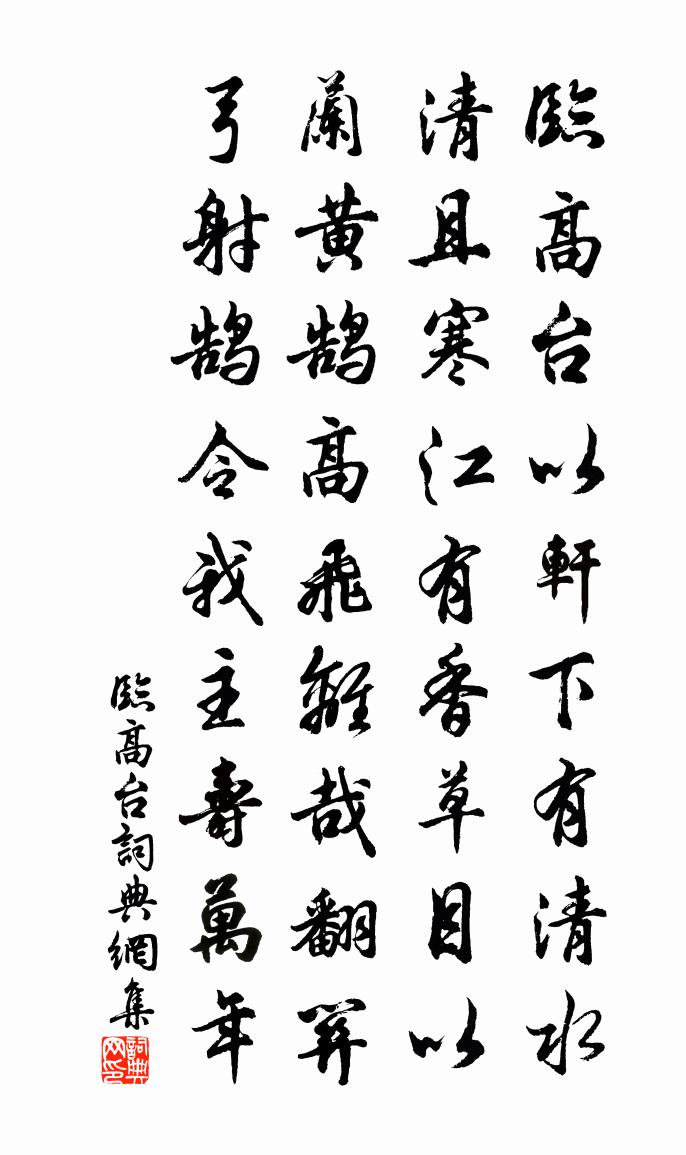 臨高台以軒下有清水
清且寒江有香草目以
蘭黃鵠高飛離哉翻關
弓射鵠令我主壽萬年
臨高台詞典網集
詞典网印